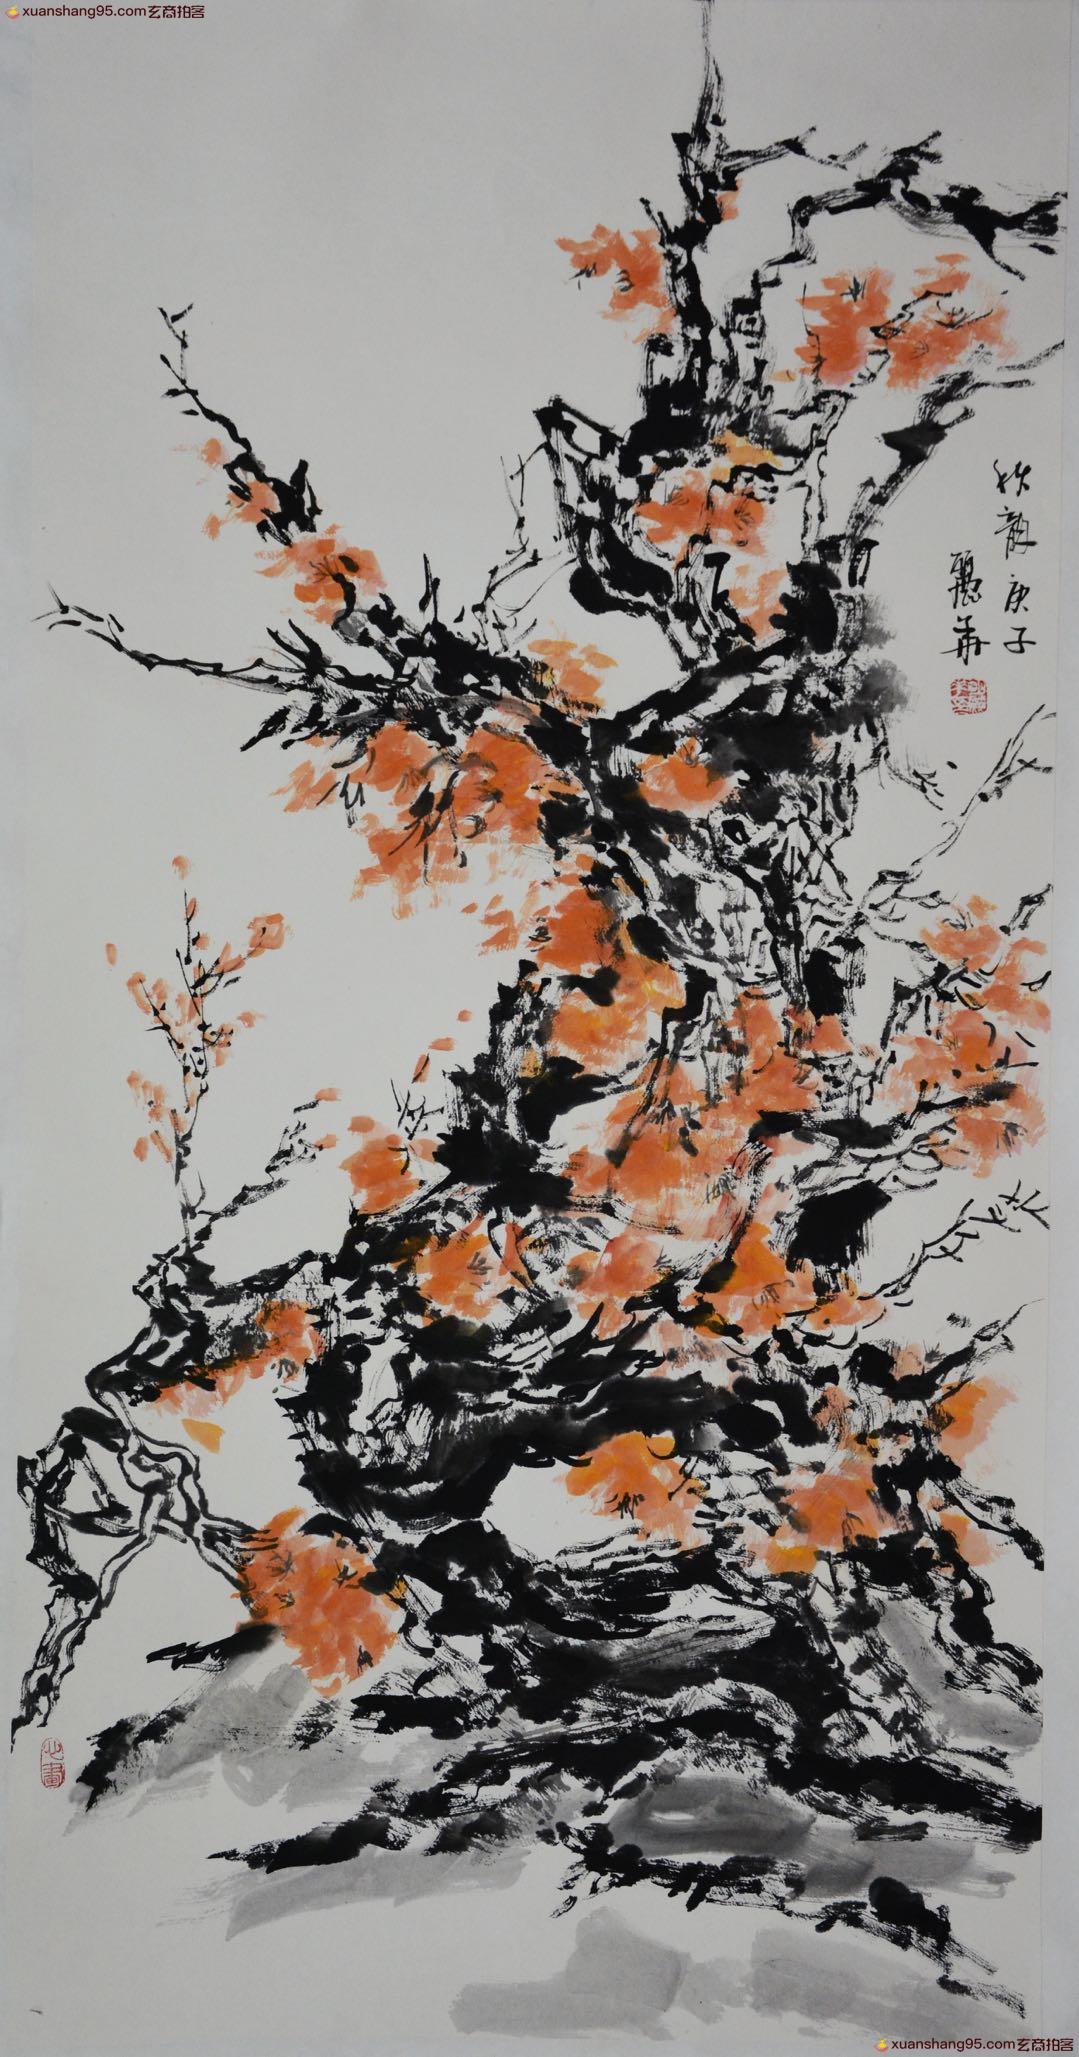 xuanshang95.com玄商拍客
秋韵庚子
丽华
心画
xuanshang95.com玄商拍客